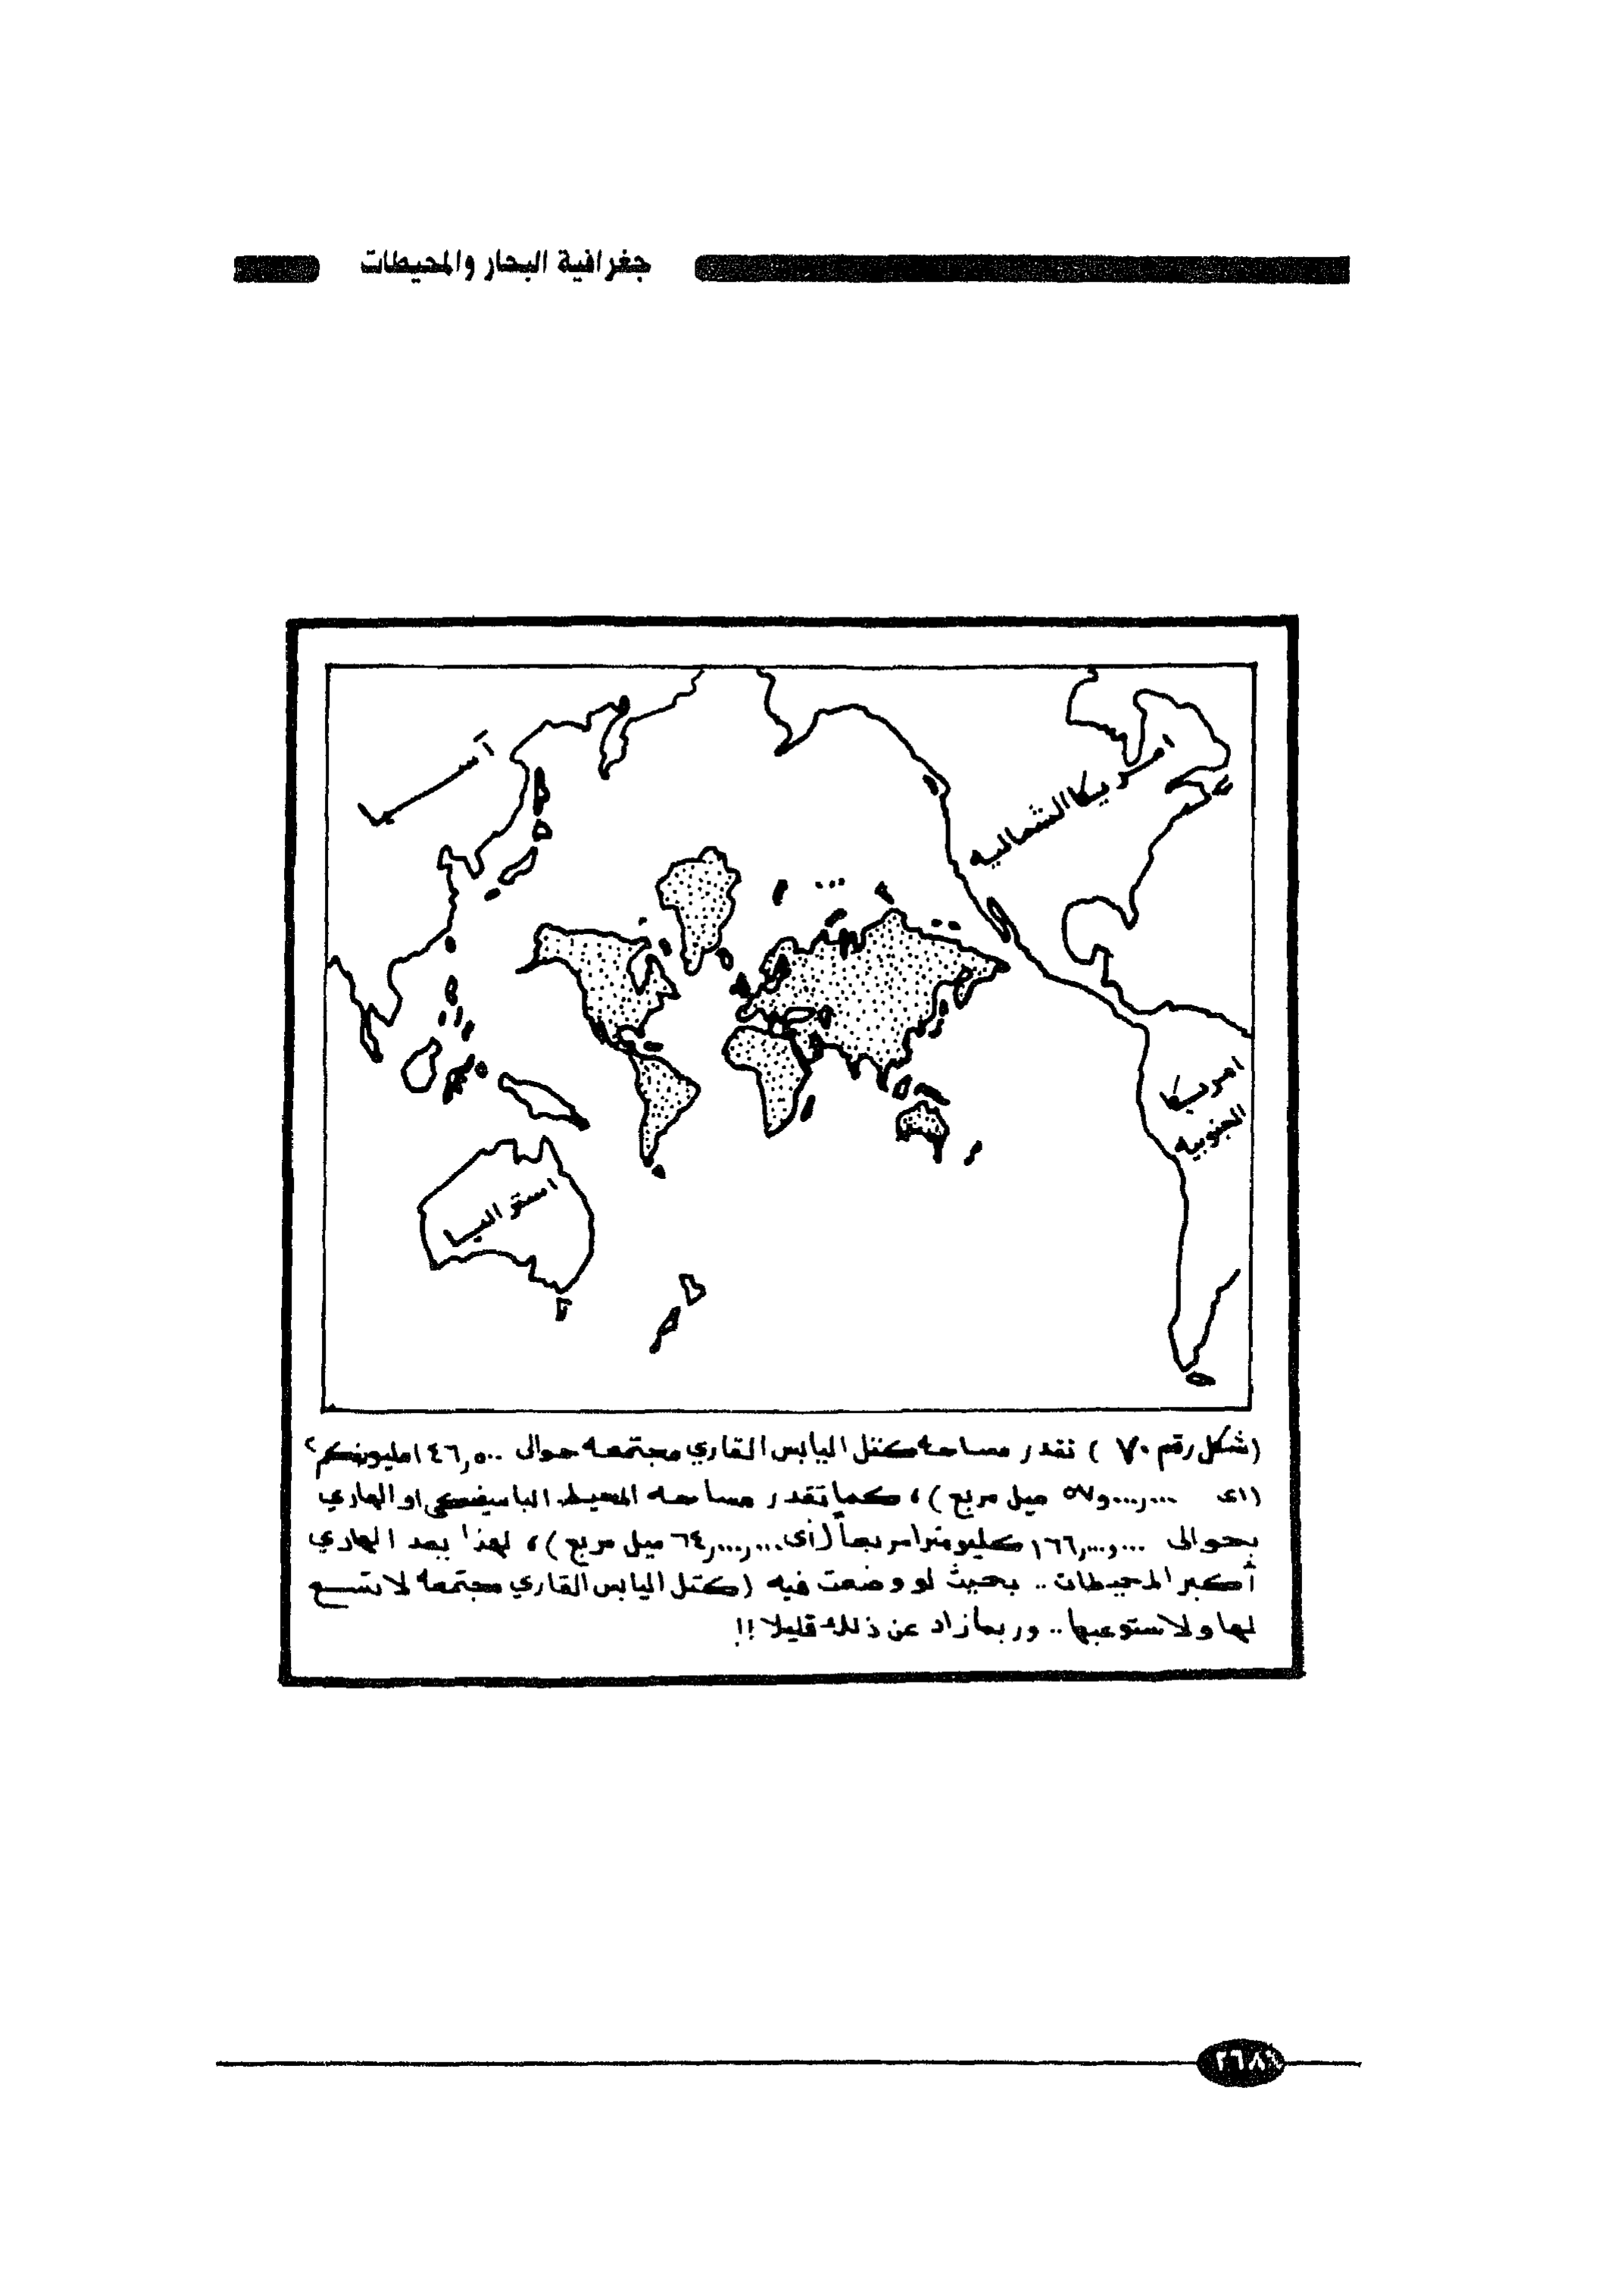 جغرافية البحار والمحيطات
آسيا
أمريكا الشماليه
امريكا
الجنوبيه
استراليا
(شكل رقم ٧٠) تقدر مساحه كتل اليابس القاري مجتمعه حوالى ١٤٦,٥٠٠ مليون كم٢
(اى ٥٧,٠٠٠,٠٠٠ ميل مربع)، كما تقدر مساحه المحيط الباسيفيكي او الهادي
بحوالى ١٦٦,٠٠٠,٠٠٠ كليومترا مربعاً (أى ٦٤,٠٠٠,٠٠٠ ميل مربع)، لهذا يعد الهادي
أكبر المحيطات.. بحيث لو وضعت فيه (كتل اليابس القاري مجتمعه لاتسع
لها ولاستوعبها.. وربما زاد عن ذلك قليلا !!